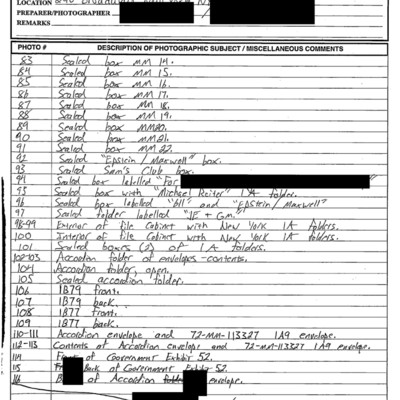 LOCATION
PREPARER/PHOTOGRAPHER
REMARKS
PHOTO # DESCRIPTION OF PHOTOGRAPHIC SUBJECT / MISCELLANEOUS COMMENTS
83 Sealed box MM 14.
84 Sealed box MM 15.
85 Sealed box MM 16.
86 Sealed box MM 17.
87 Sealed box MM 18.
88 Sealed box MM 19.
89 Sealed box MM20.
90 Sealed box MM21.
91 Sealed box MM 22.
92 Sealed "Epstein / Maxwell" box.
93 Sealed Sam's Club box.
94 Sealed box labelled "For
95 Sealed box with "Michael Reiter" 1A folder.
96 Sealed box labelled and "Epstein / Maxwell"
97 Sealed folder labelled "JE + GM."
98-99 Exterior of File Cabinet with New York 1A folders.
100 Interior of File Cabinet with New York 1A folders.
101 Sealed boxes (2) of 1A folders.
102-103 Accordion folder of envelopes - contents.
104 Accordion folder, open.
105 Sealed accordion folder.
106 1B79 front.
107 1B79 back.
108 1B77 front.
109 1B77 back.
110-111 Accordion envelope and 72-MM-113327 1A9 envelope.
112-113 Contents of Accordion envelope and 72-MM-113327 1A9 envelope.
114 Front of Government Exhibit 52.
115 Back of Government Exhibit 52.
116 of Accordion envelope.